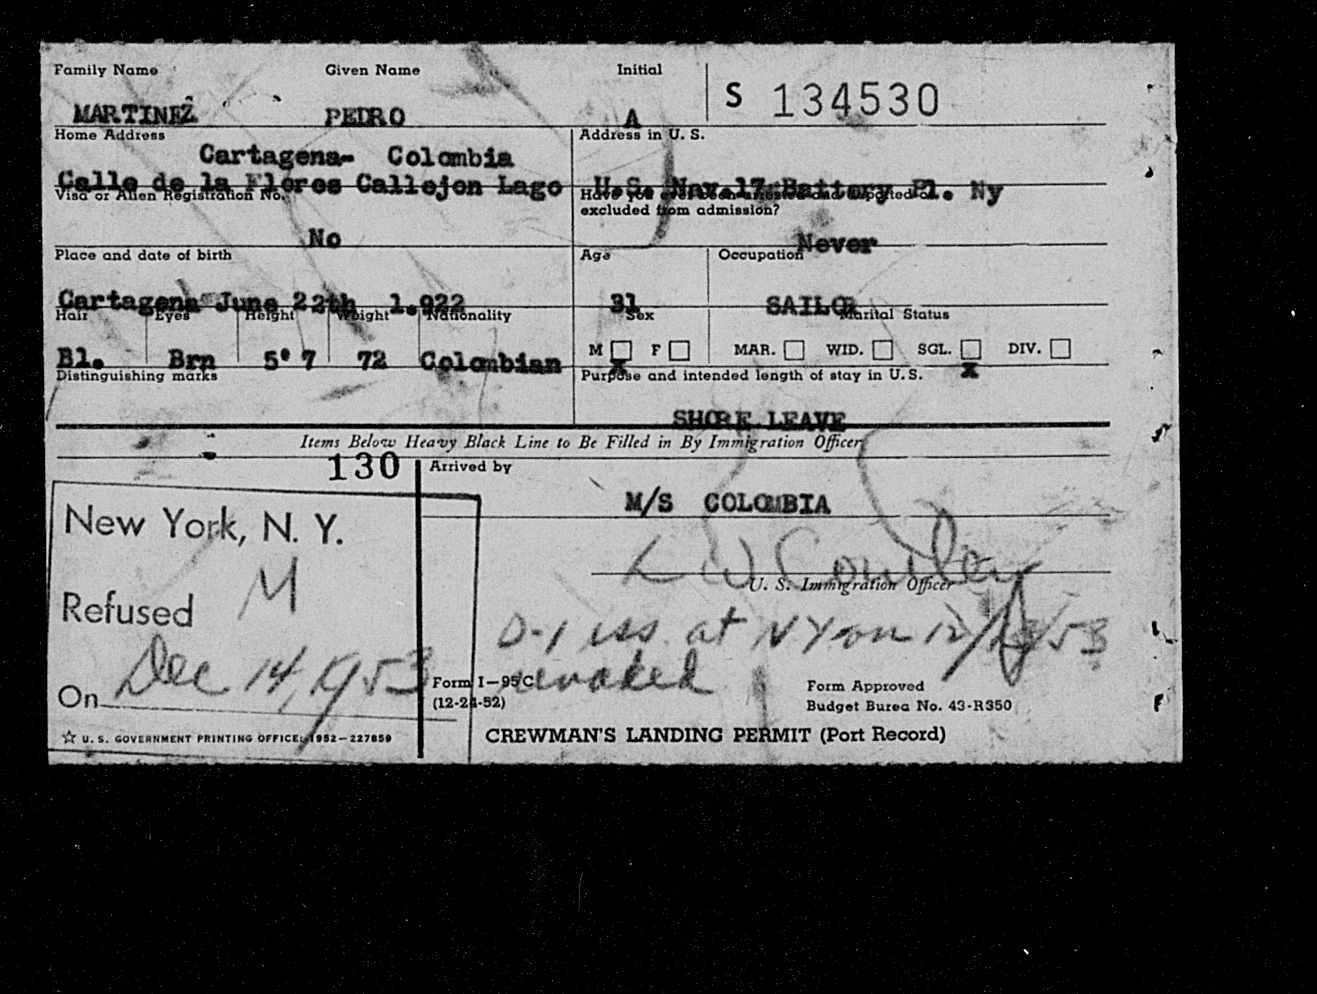 Family Name Given Name Initial S 134530
MARTINEZ PEDRO A
Home Address Address in U. S.
Cartagena- Colombia
Calle de la Flores Callejon Lago U.S. Nav.17 Battery Pl. Ny
Visa or Alien Registration No. Have you ever been arrested and deported or
excluded from admission?
No Never
Place and date of birth Age Occupation
Cartagena June 22th 1.922 31 SAILOR
Hair Eyes Height Weight Nationality Sex Marital Status
Bl. Brn 5' 7 72 Colombian M F MAR. WID. SGL. DIV.
X X
Distinguishing marks Purpose and intended length of stay in U.S.
SHORE LEAVE
Items Below Heavy Black Line to Be Filled in By Immigration Officer
130 Arrived by
M/S COLOMBIA
New York, N. Y.
L W Cowley
U. S. Immigration Officer
Refused M
D-1 iss. at NY on 12/ /53
revoked
On Dec 14, 1953
Form I-95C
(12-24-52)
Form Approved
Budget Burea No. 43-R350
☆ U. S. GOVERNMENT PRINTING OFFICE: 1952-227859
CREWMAN'S LANDING PERMIT (Port Record)